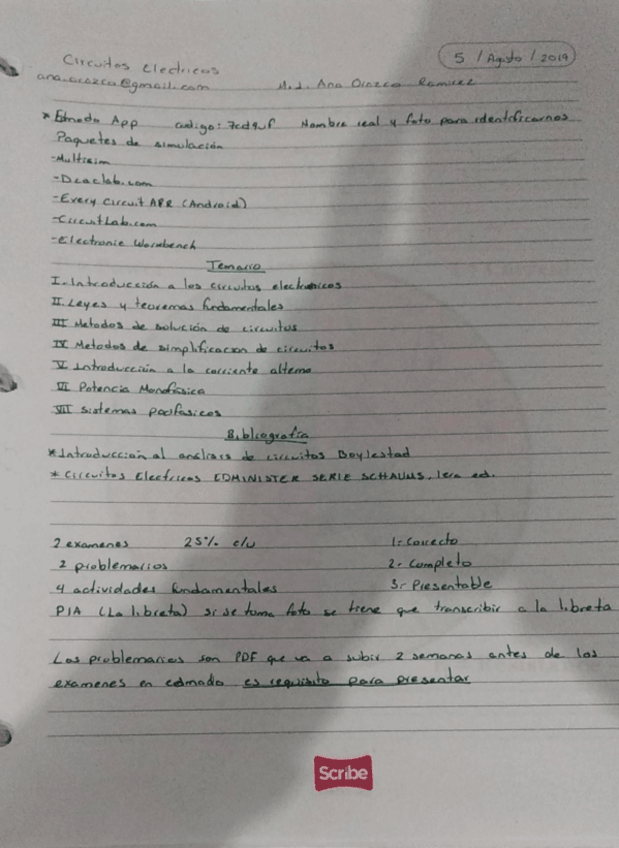 Circuitos Electricos
5 / Agosto / 2019
ana.orozco@gmail.com M.I. Ana Orozco Ramirez
* Edmodo App codigo: 7cd9uf Nombre real y foto para identificarnos
Paquetes de simulación
-Multisim
-Dcaclab.com
-Every Circuit APP (Android)
-CircuitLab.com
-Electronic Wormbench
Temario
I. Introducción a los circuitos electronicos
II. Leyes y teoremas fundamentales
III Metodos de solución de circuitos
IV Metodos de simplificacion de circuitos
V Introducción a la corriente alterna
VI Potencia Monofásica
VII Sistemas polifasicos
Bibliografia
* Introduccion al analisis de circuitos Boylestad
* Circuitos Electricos EDMINISTER SERIE SCHAUMS, 1era ed.
2 examenes 25% c/u 1- Correcto
2 problemarios 2- Completo
4 actividades fundamentales 3- Presentable
PIA (La libreta) si se toma foto se tiene que transcribir a la libreta
Los problemarios son PDF que va a subir 2 semanas antes de los
examenes en edmodo es requisito para presentar
Scribe